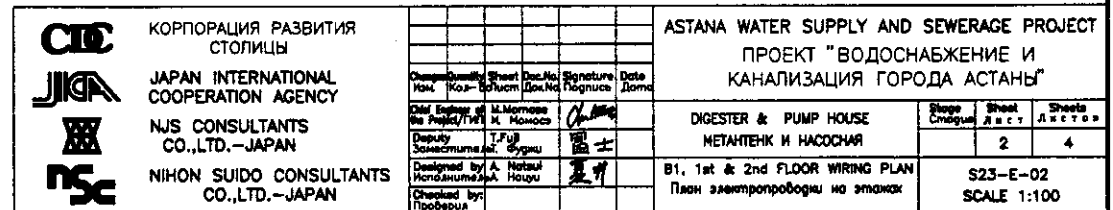 CDC
КОРПОРАЦИЯ РАЗВИТИЯ
СТОЛИЦЫ
JICA
JAPAN INTERNATIONAL
COOPERATION AGENCY
NJS CONSULTANTS
CO.,LTD.-JAPAN
nsc
NIHON SUIDO CONSULTANTS
CO.,LTD.-JAPAN
Changes Quantity Sheet Doc.No. Signature Date
Изм. Кол- Лист Док.No Подпись Дата
Chief Engineer of the Project/ГИП
M.Momose
М. Момосэ
Deputy
Заместитель
T.Fuji
Т. Фудзи
富士
Designed by
Исполнитель
A. Natsui
夏井
Checked by:
Проверил
ASTANA WATER SUPPLY AND SEWERAGE PROJECT
ПРОЕКТ "ВОДОСНАБЖЕНИЕ И
КАНАЛИЗАЦИЯ ГОРОДА АСТАНЫ"
DIGESTER & PUMP HOUSE
МЕТАНТЕНК И НАСОСНАЯ
Stage Sheet Sheets
Стадия Лист Листов
2 4
B1, 1st & 2nd FLOOR WIRING PLAN
План электропроводки на этажах
S23-E-02
SCALE 1:100